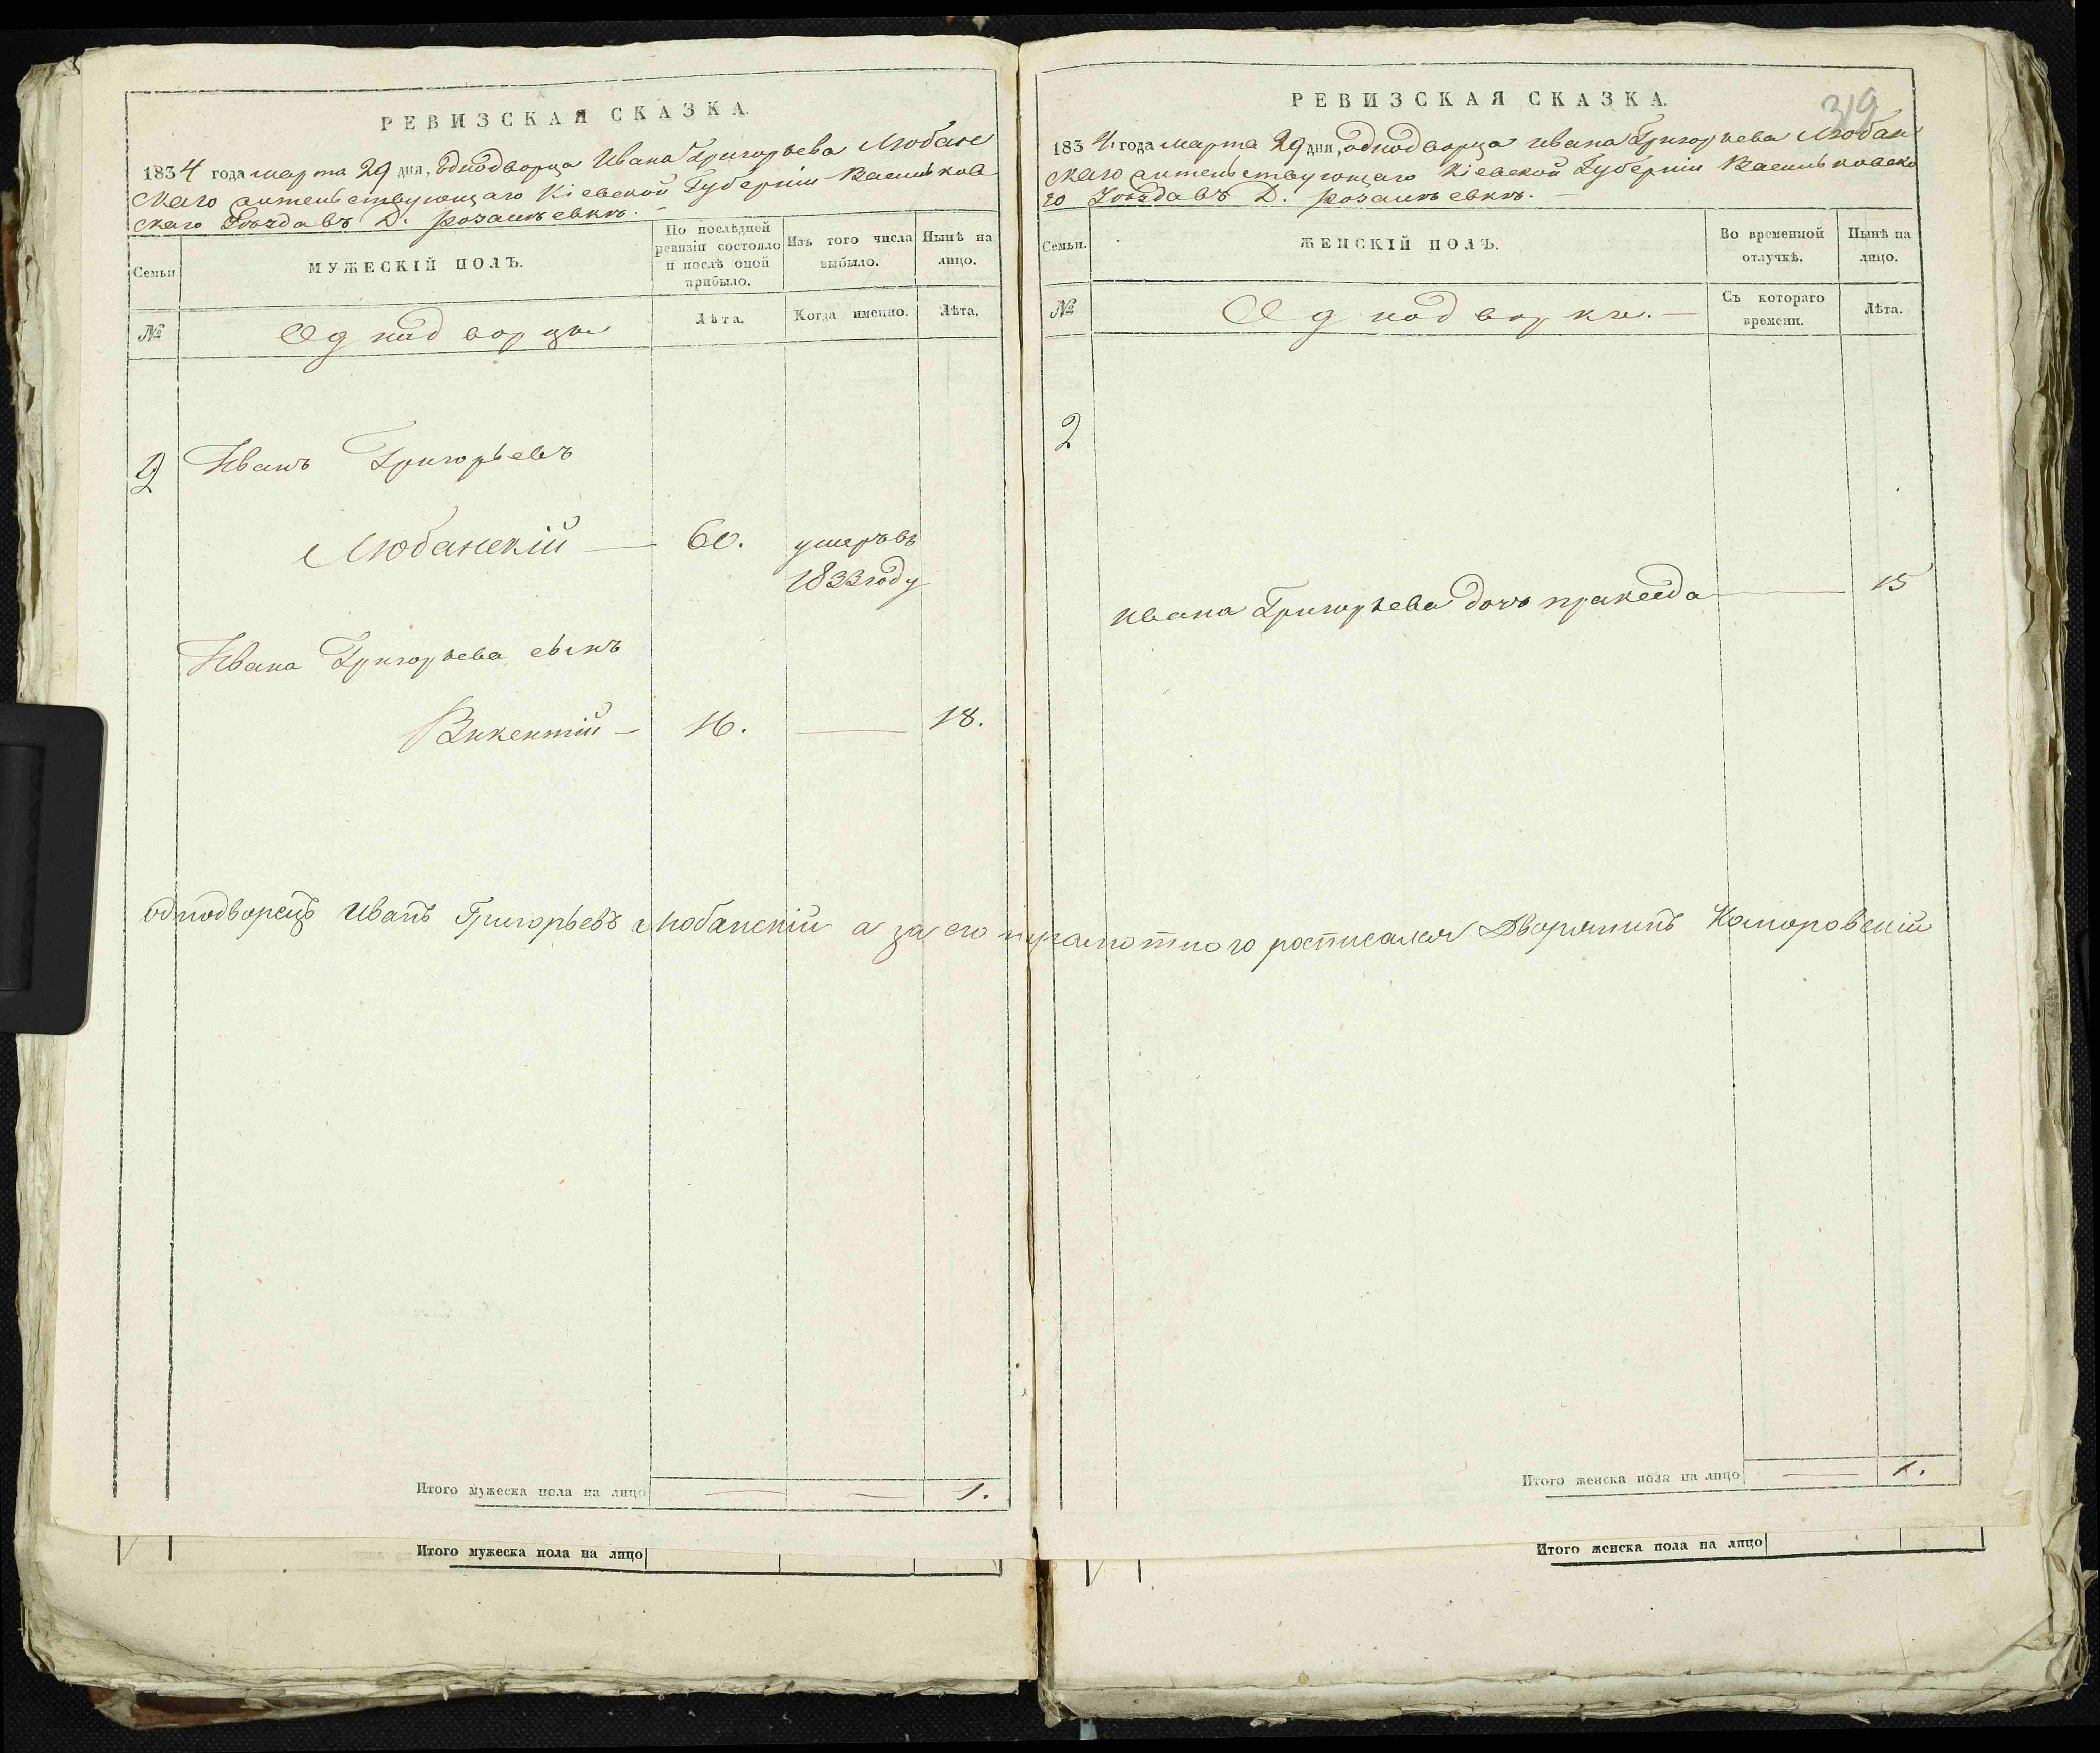 РЕВИЗСКАЯ СКАЗКА.
1834 года марта 29 дня, однодворца Ивана Григорьева Любанс
каго жительствующаго Кіевской Губерніи Васильков
скаго Уѣзда въ Д.
Семьи
МУЖЕСКІЙ ПОЛЪ.
По послѣдней ревизіи состояло и послѣ оной прибыло.
Изъ того числа выбыло.
Нынѣ на лицо.
№
Однодворцы
Лѣта.
Когда именно.
Лѣта.
2 Иванъ Григорьевъ
Любанскій — 60. умеръ въ
1833 году
Ивана Григорьева сынъ
Викентій — 16. — 18.
однодворецъ Иванъ Григорьевъ Любанскій а за его неграмотного росписался Дворянинъ Коморовскій
Итого мужеска пола на лицо — — 1.
Итого мужеска пола на лицо
319
РЕВИЗСКАЯ СКАЗКА.
1834 года марта 29 дня, однодворца Ивана Григорьева Любан
скаго жительствующаго Кіевской Губерніи Васильковско
го Уѣзда въ Д.
Семьи.
ЖЕНСКІЙ ПОЛЪ.
Во временной отлучкѣ.
Нынѣ на лицо.
№
Однодворки. —
Съ котораго времени.
Лѣта.
2
Ивана Григорьева дочь пракседа — 15
Итого женска пола на лицо — 1.
Итого женска пола на лицо